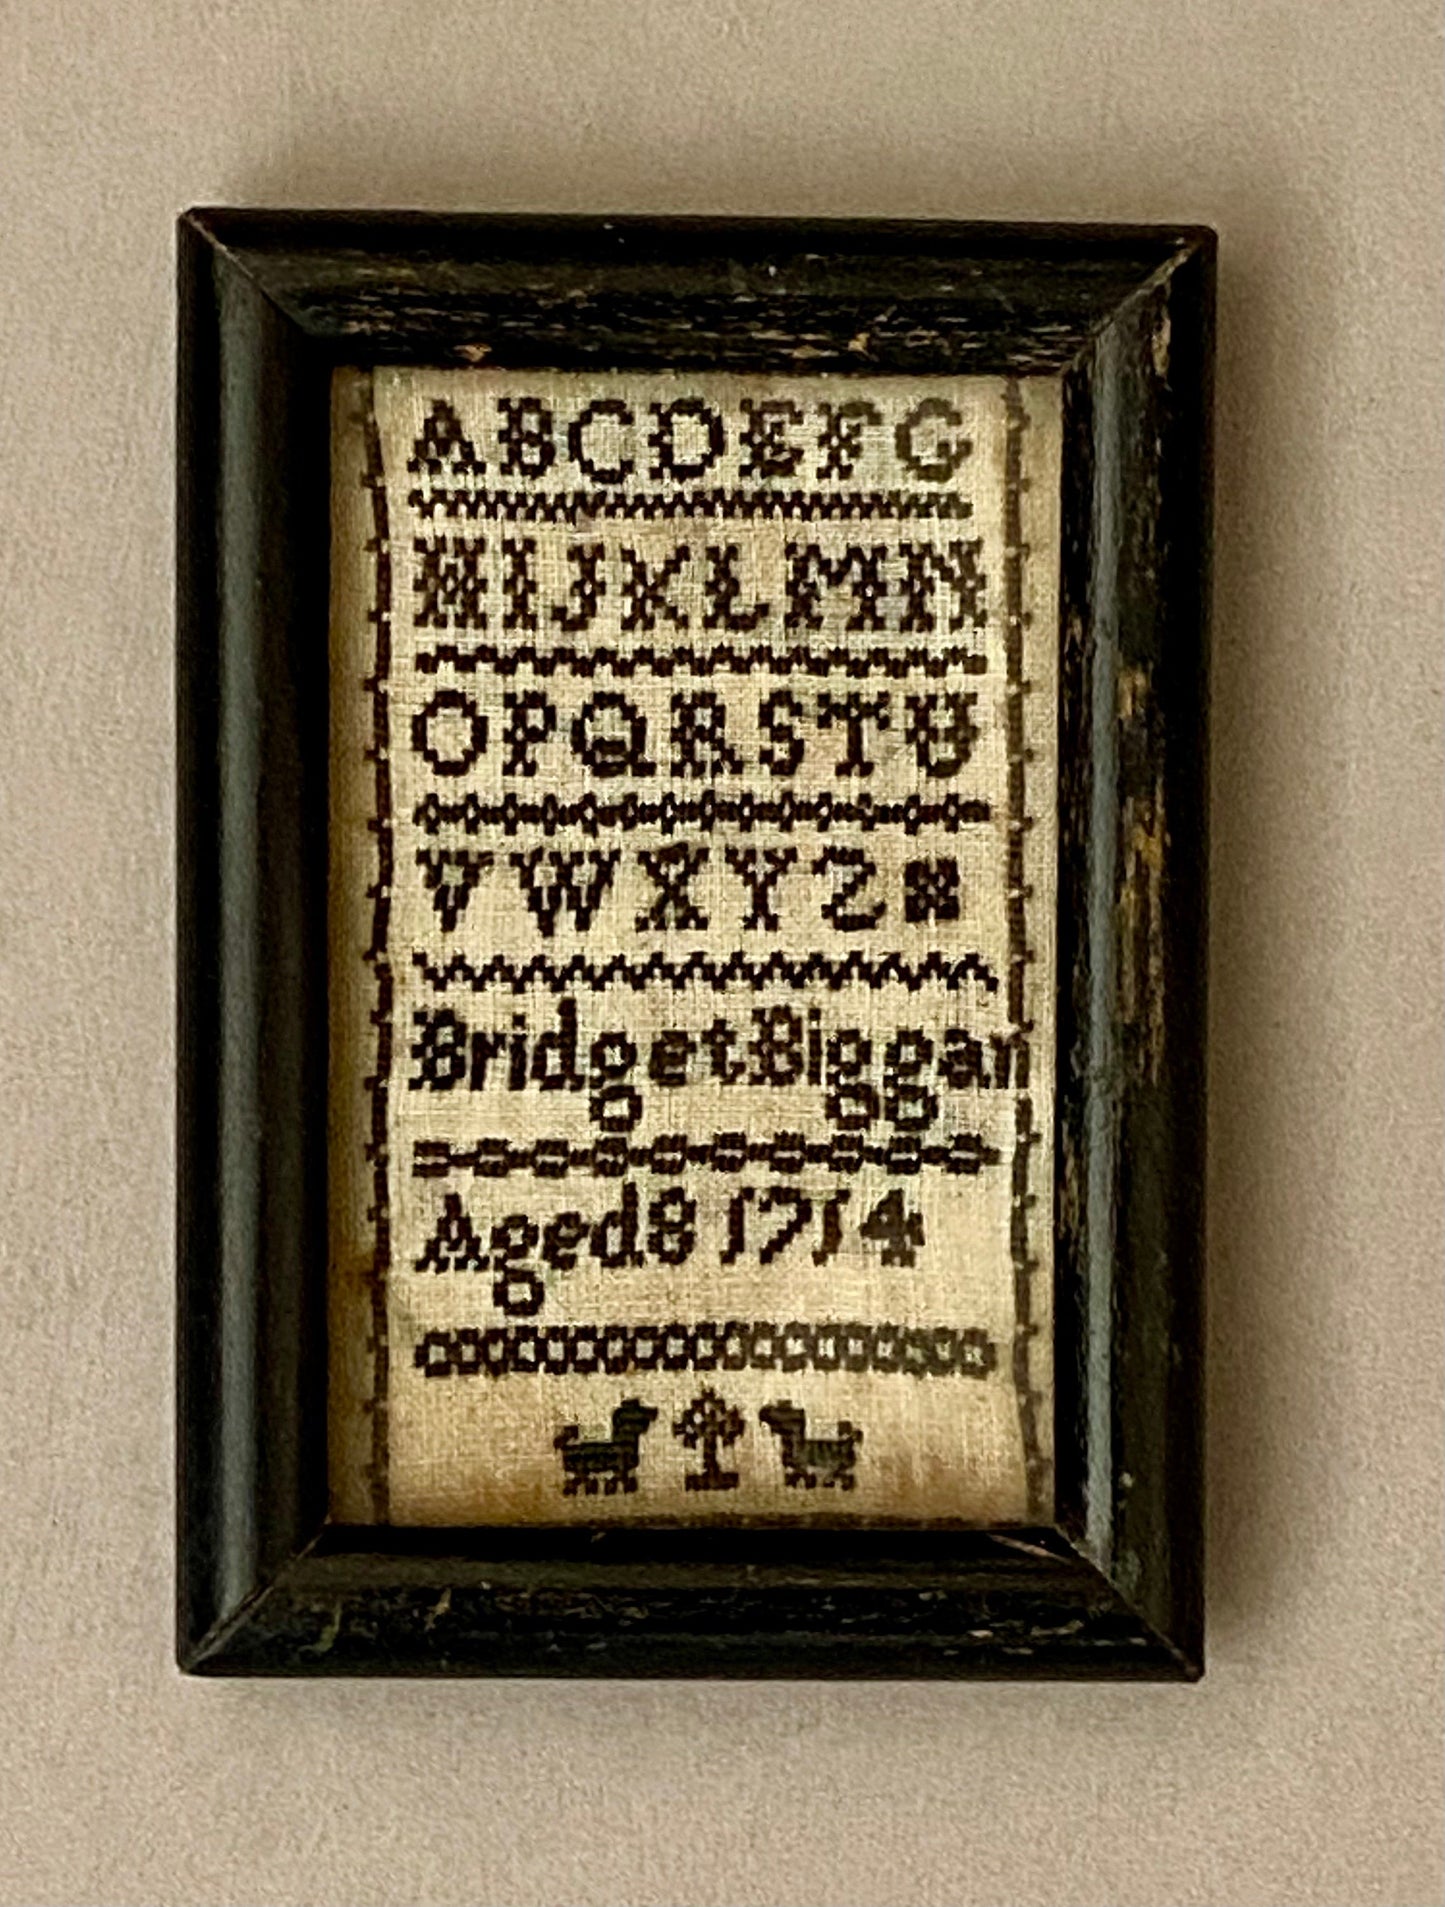 ABCDEFG
HIJKLMN
OPQRSTU
VWXYZ
Bridget Biggan
Aged 8 1714